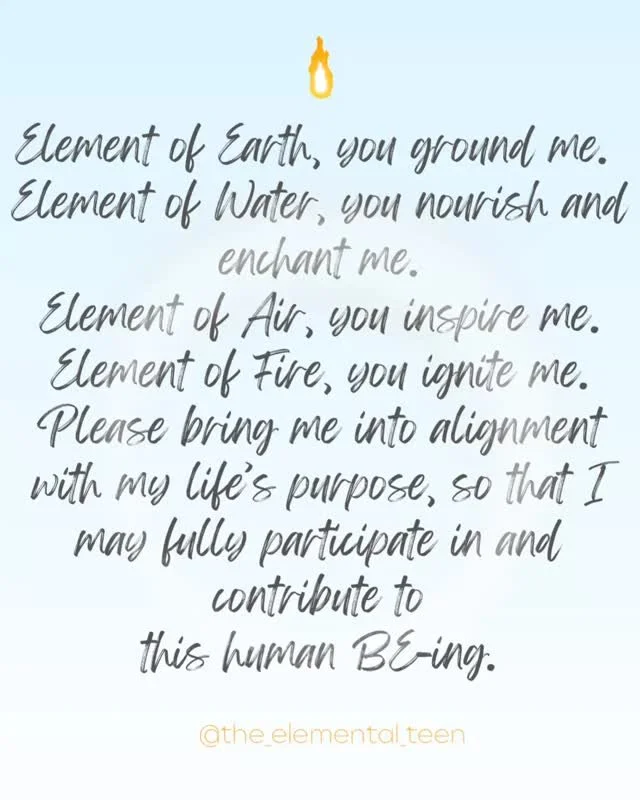 Element of Earth, you ground me.
Element of Water, you nourish and
enchant me.
Element of Air, you inspire me.
Element of Fire, you ignite me.
Please bring me into alignment
with my life's purpose, so that I
may fully participate in and
contribute to
this human BE-ing.
@the_elemental_teen